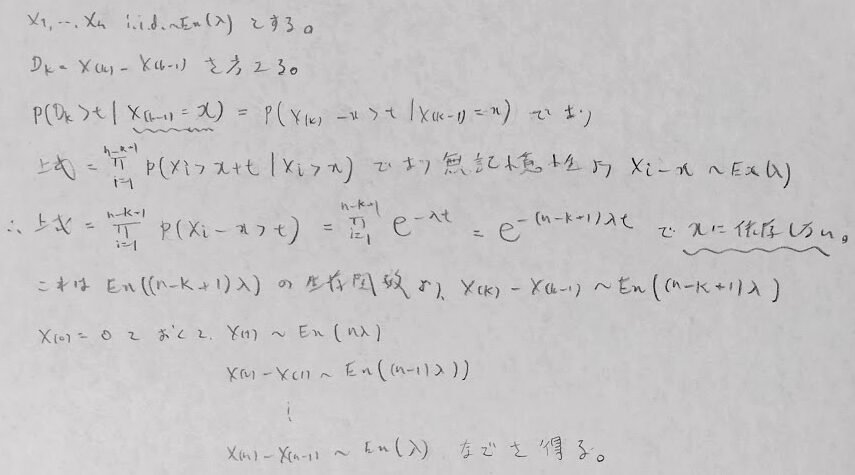 X₁, …, Xₙ i.i.d. ~ Ex(λ) とする。
D_k = X_(k) - X_(k-1) を考える。
P(D_k > t | X_(k-1) = x) = P(X_(k) - x > t | X_(k-1) = x) であり
上式 = ∏_{i=1}^{n-k+1} P(X_i > x+t | X_i > x) であり 無記憶性より X_i - x ~ Ex(λ)
∴ 上式 = ∏_{i=1}^{n-k+1} P(X_i - x > t) = ∏_{i=1}^{n-k+1} e^{-λt} = e^{-(n-k+1)λt} で xに依存しない。
これは Ex((n-k+1)λ) の生存関数より、X_(k) - X_(k-1) ~ Ex((n-k+1)λ)
X_(0) = 0 とおくと、X_(1) ~ Ex(nλ)
X_(2) - X_(1) ~ Ex((n-1)λ))
⋮
X_(n) - X_(n-1) ~ Ex(λ) などを得る。